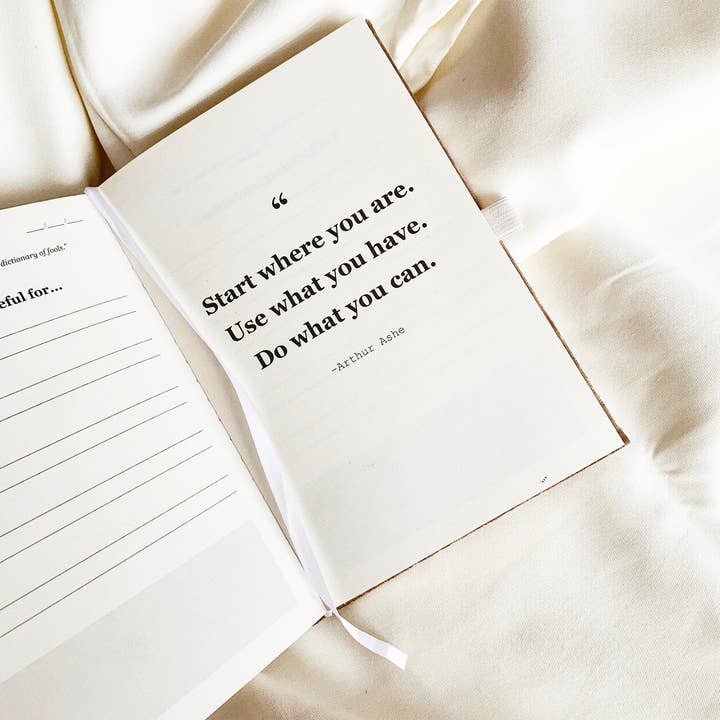 __/__/__
dictionary of fools."
eful for...
“
Start where you are.
Use what you have.
Do what you can.
–Arthur Ashe